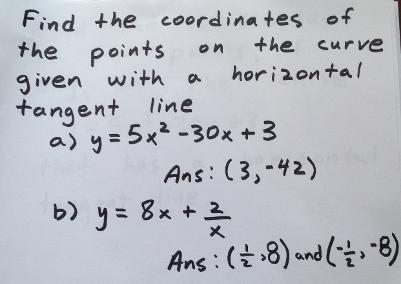 Find the coordinates of
the points on the curve
given with a horizontal
tangent line
a) y = 5x² - 30x + 3
Ans: (3, -42)
b) y = 8x + 2/x
Ans: (1/2, 8) and (-1/2, -8)